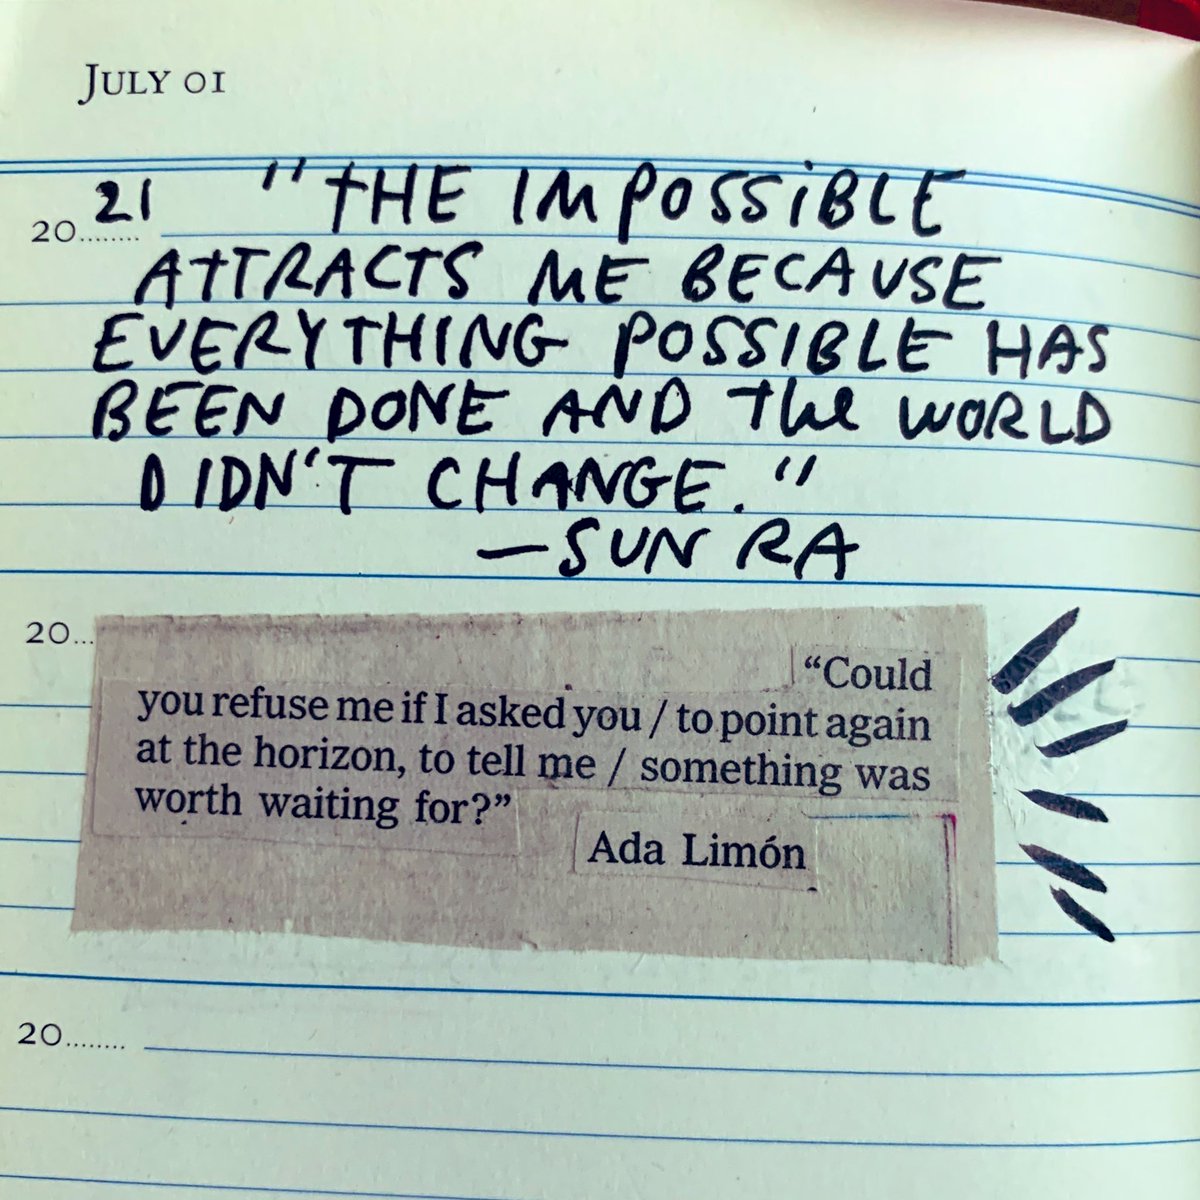 JULY 01
2021 "THE IMPOSSIBLE
ATTRACTS ME BECAUSE
EVERYTHING POSSIBLE HAS
BEEN DONE AND the WORLD
DIDN'T CHANGE."
—SUN RA
20...
“Could
you refuse me if I asked you / to point again
at the horizon, to tell me / something was
worth waiting for?”
Ada Limón
20........